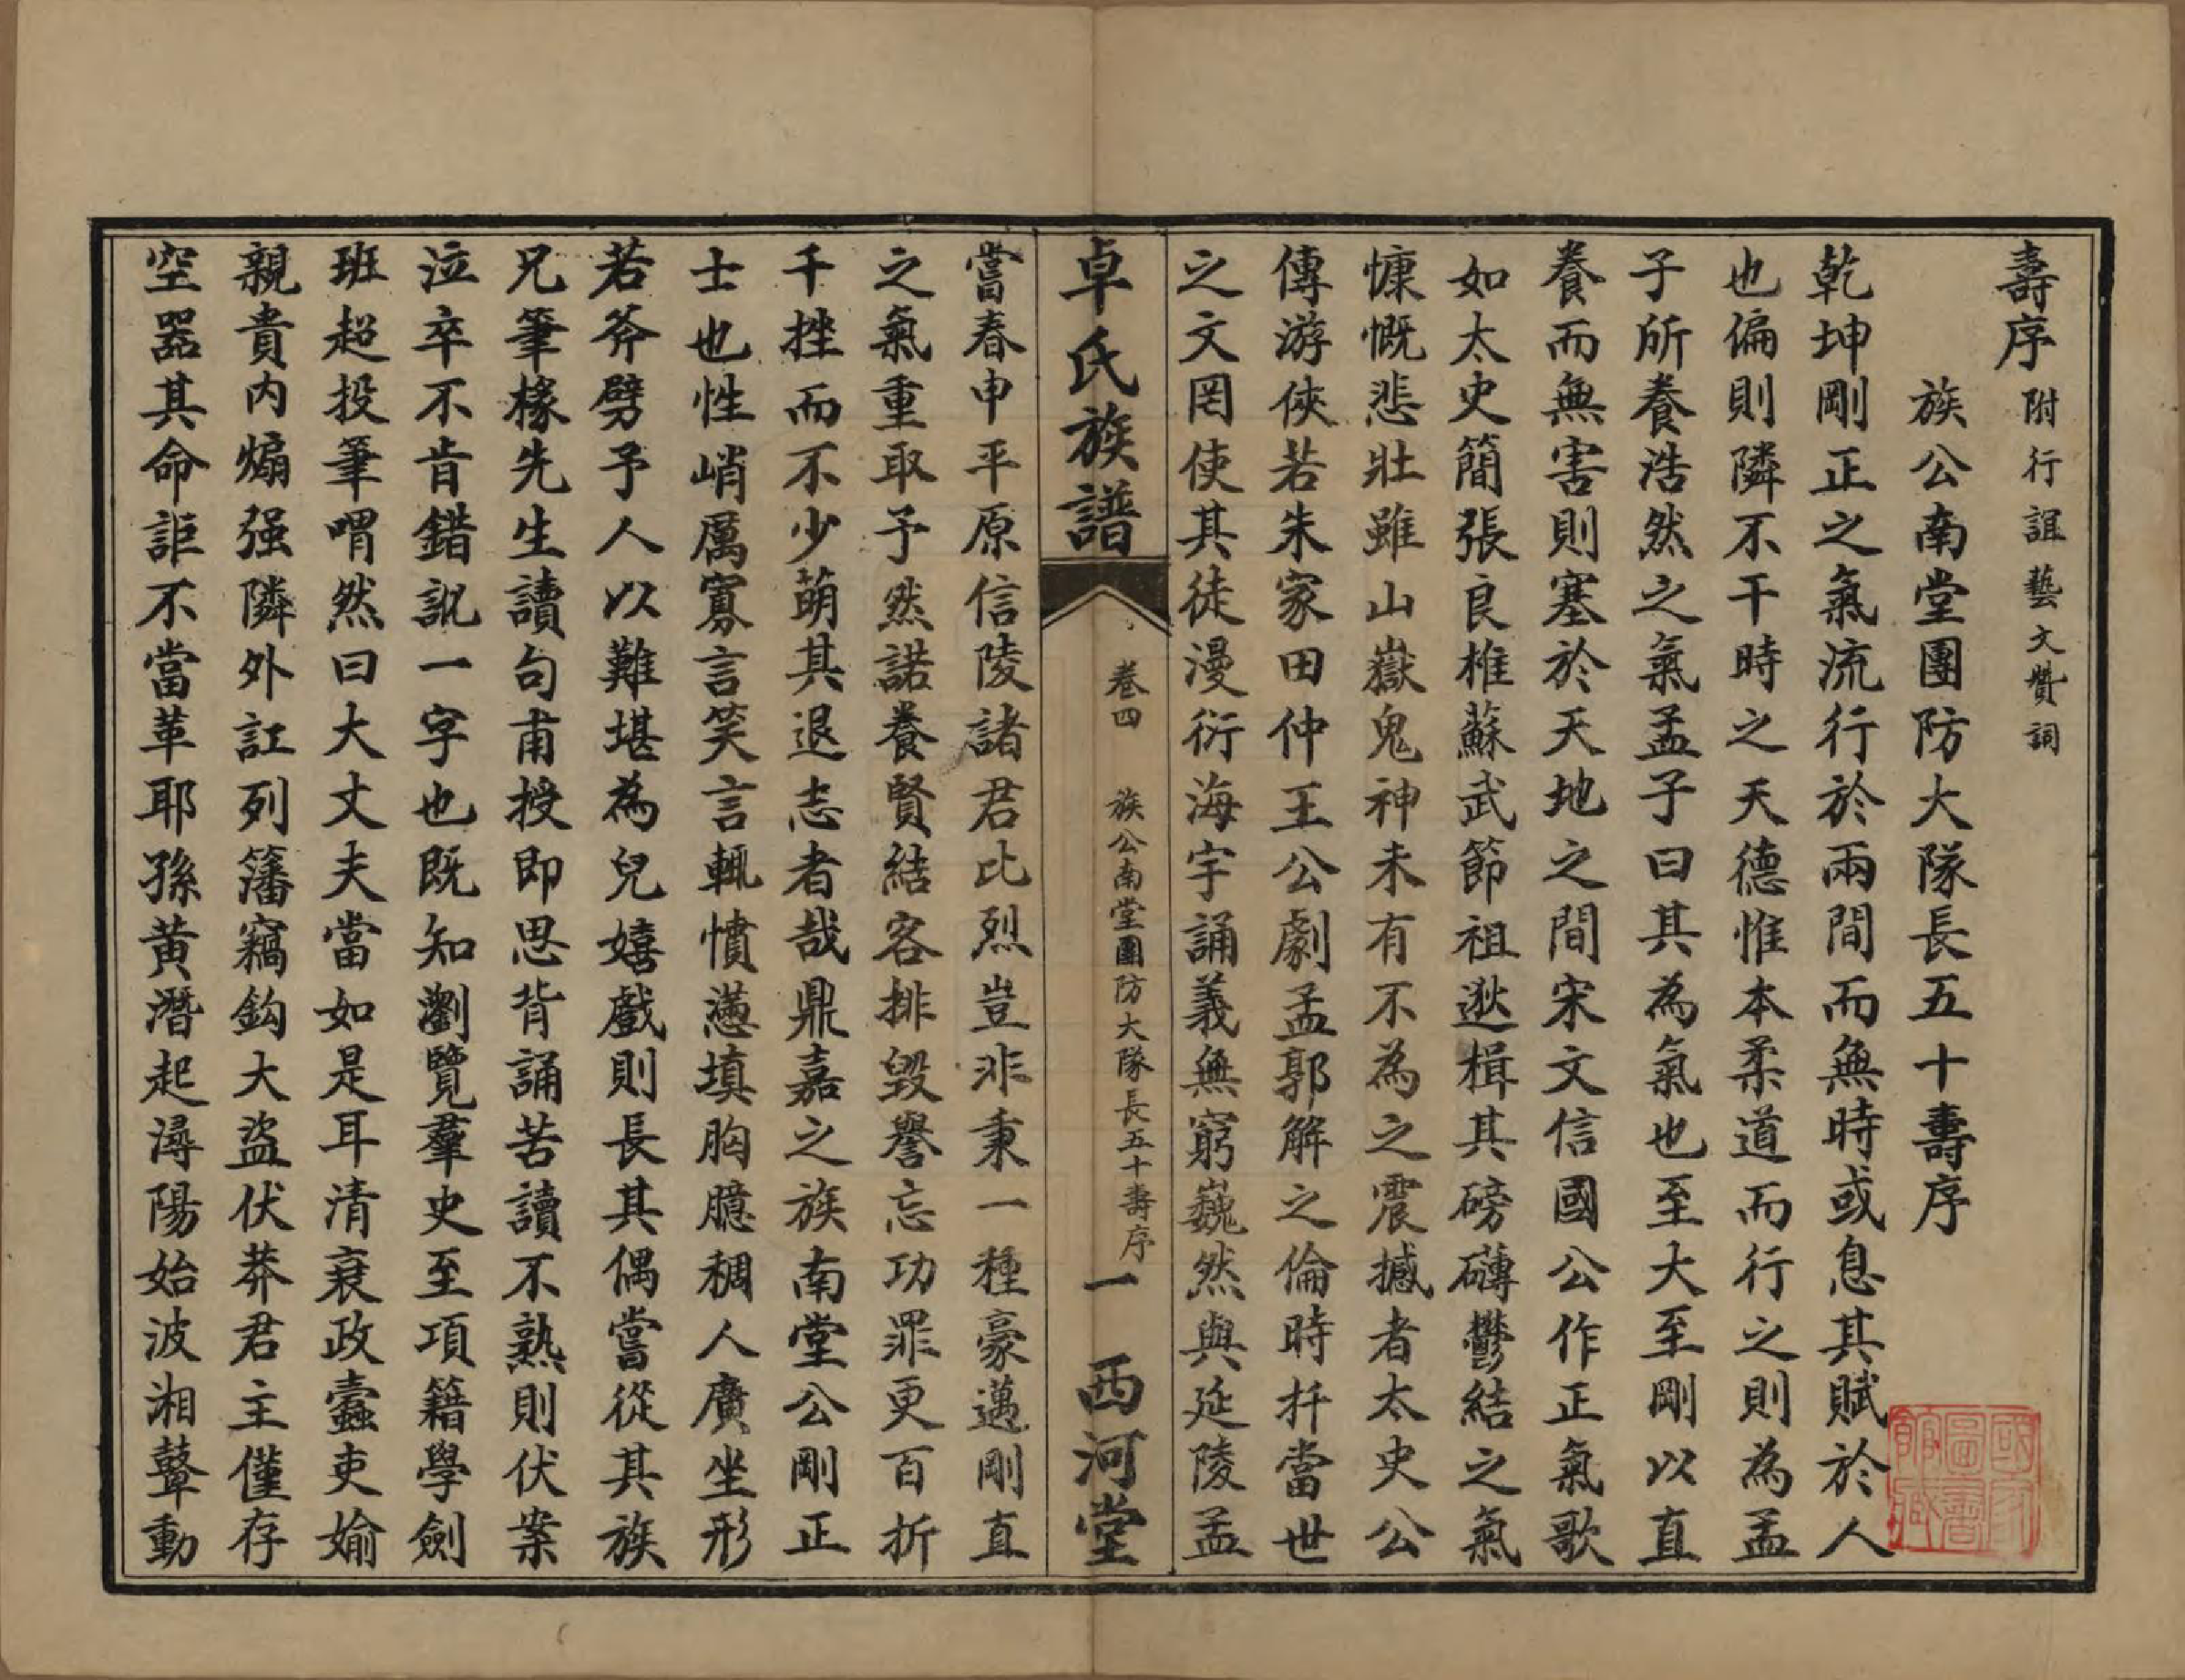 壽序附行誼藝文贊詞
族公南堂團防大隊長五十壽序
乾坤剛正之氣流行於兩間而無時或息其賦於人
也偏則隣不干時之天德惟本柔道而行之則為孟
子所養浩然之氣孟子曰其為氣也至大至剛以直
養而無害則塞於天地之間宋文信國公作正氣歌
如太史簡張良椎蘇武節祖逖楫其磅礴鬱結之氣
慷慨悲壯雖山嶽鬼神未有不為之震撼者太史公
傳游俠若朱家田仲王公劇孟郭解之倫時扞當世
之文罔使其徒漫衍海宇誦義無窮巍然與延陵孟
卓氏族譜
卷四
族公南堂團防大隊長五十壽序
一
西河堂
嘗春申平原信陵諸君比烈豈非秉一種豪邁剛直
之氣重取予然諾養賢結客排毀譽忘功罪更百折
千挫而不少萌其退志者哉鼎嘉之族南堂公剛正
士也性峭厲寡言笑言輒憤懣填胸臆稠人廣坐形
若斧劈予人以難堪為兒嬉戲則長其偶嘗從其族
兄筆椽先生讀句甫授即思背誦苦讀不熟則伏案
泣卒不肯錯訛一字也既知瀏覽羣史至項籍學劍
班超投筆喟然曰大丈夫當如是耳清衰政蠹吏媮
親貴內煽强隣外訌列籓竊鈎大盜伏莽君主僅存
空器其命詎不當革耶孫黃潛起潯陽始波湘鼙動
國家圖書館藏